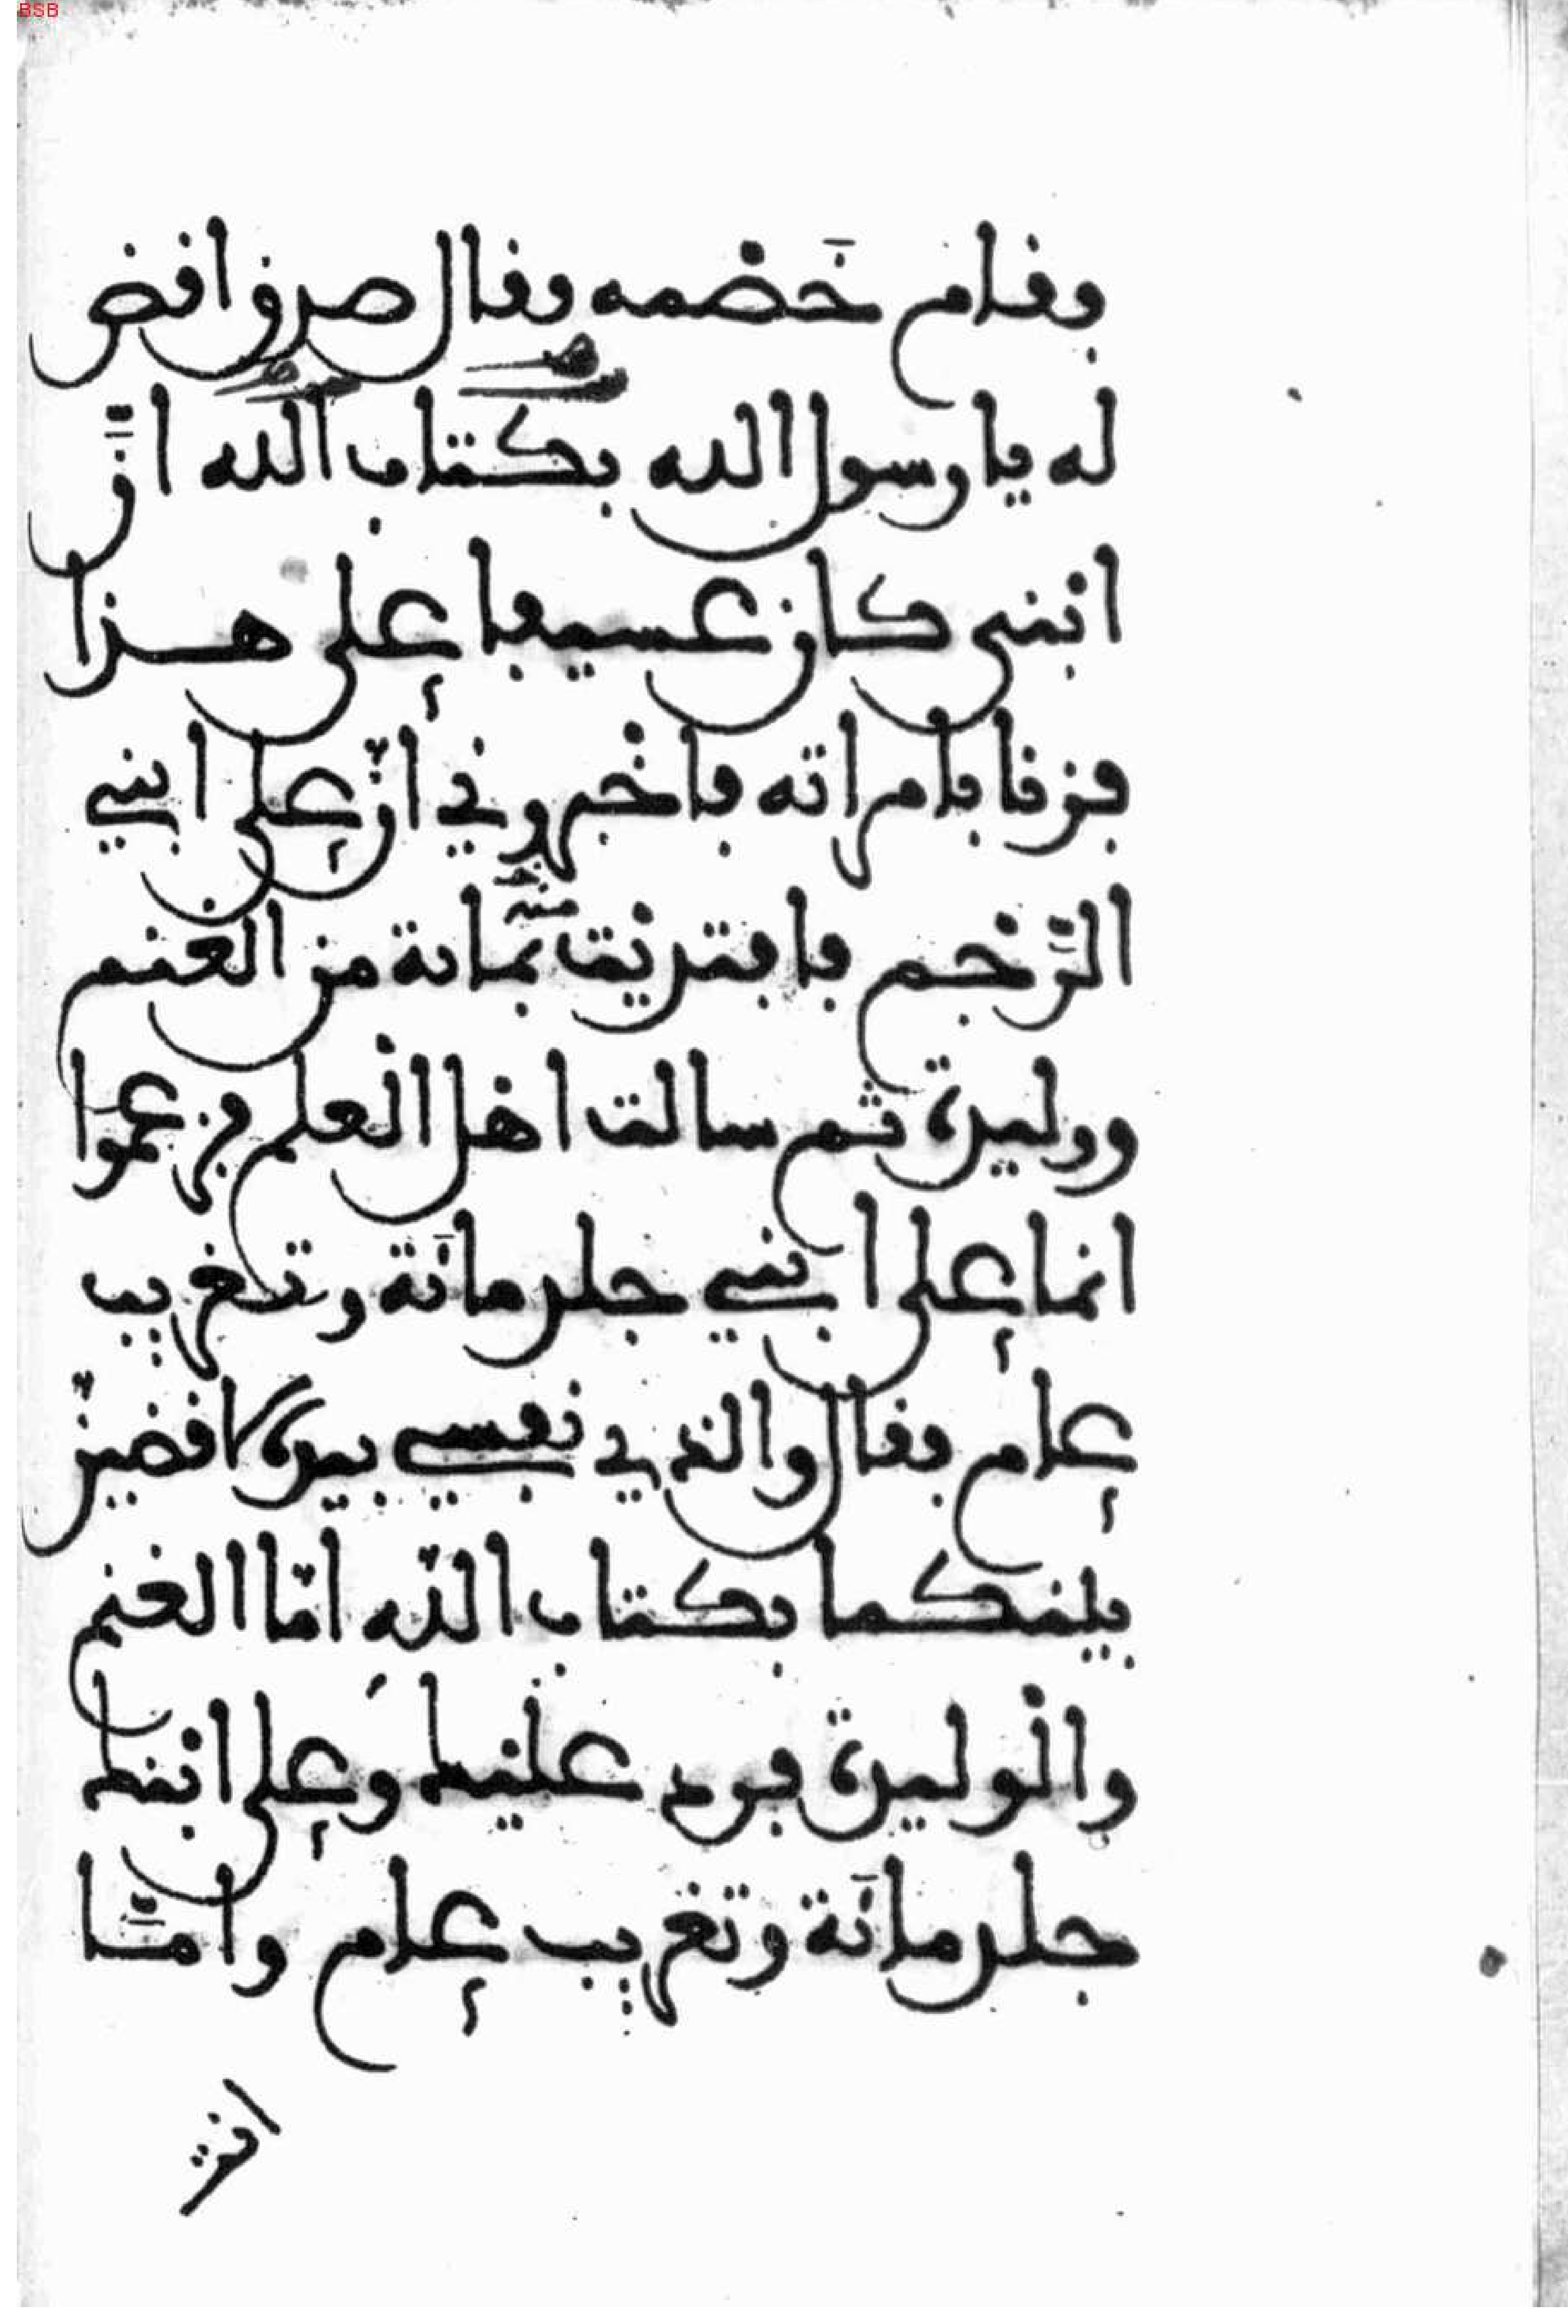 BSB
فقام خصمه فقال صدق اقض
له يا رسول الله بكتاب الله انّ
ابنى كان عسيفا على هذا
فزنا بامراته فاخبروني انّ على ابني
الرّجم فافتديت بمائة من الغنم
ووليدة ثم سالت اهل العلم فزعموا
انما على ابني جلد مائة وتغريب
عام فقال والذي نفسي بيده لاقضينّ
بينكما بكتاب اللّه امّا الغنم
والوليدة فرد عليك وعلى ابنك
جلد مائة وتغريب عام وامّا
انت